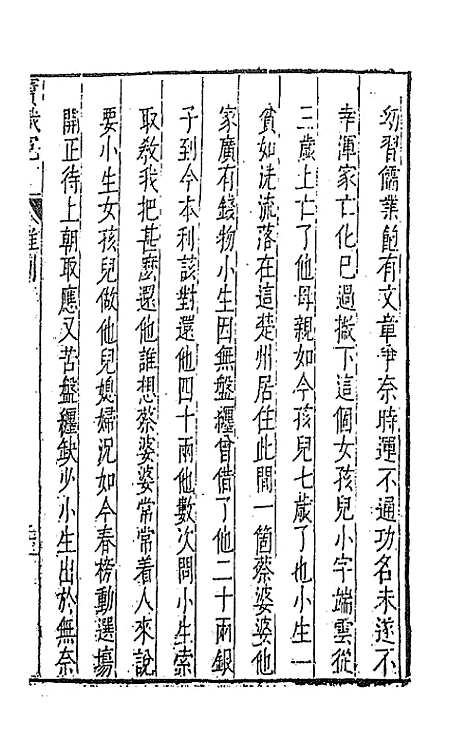 幼習儒業飽有文章爭奈時運不通功名未遂不
幸渾家亡化已過撇下這個女孩兒小字端雲從
三歲上亡了他母親如今孩兒七歲了也小生一
貧如洗流落在這楚州居住此間一箇蔡婆婆他
家廣有錢物小生因無盤纏曾借了他二十兩銀
子到今本利該對還他四十兩他數次問小生索
取教我把甚麼還他誰想蔡婆婆常常着人來說
要小生女孩兒做他兒媳婦況如今春榜動選場
開正待上朝取應又苦盤纏缺少小生出於無奈
竇娥冤 雜劇